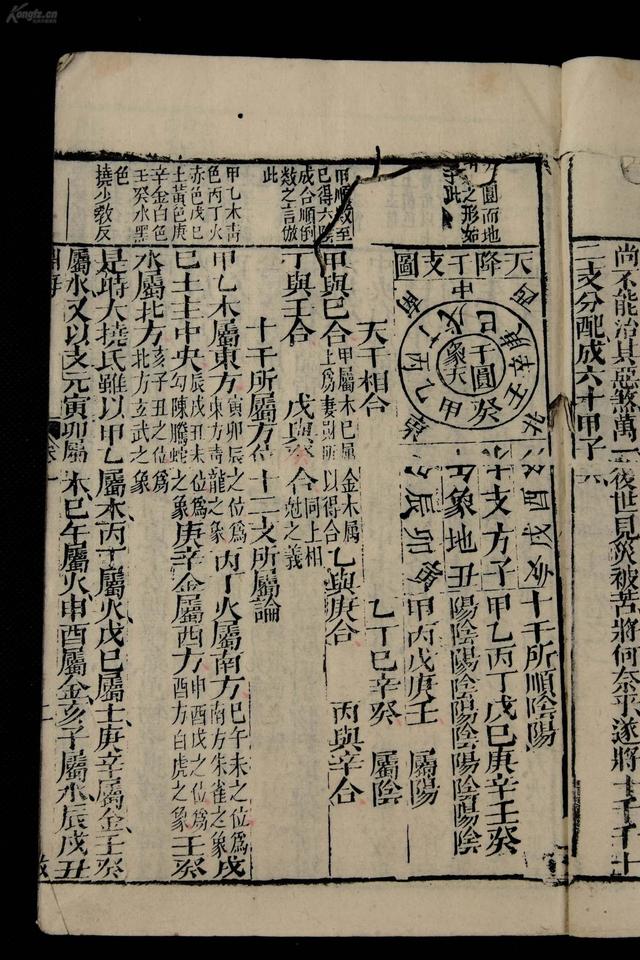 尚不能治其惡煞萬一後世見災被苦將何奈乎遂將十干十
二支分配成六十甲子
圓而地
之形如
此
天降干支圖
中
戊己
庚辛
壬癸
甲乙
丙丁
干圓
象天
西
北
南
十支方子
象地丑
酉戌亥
辰卯寅
十干所順陰陽
甲乙丙丁戊己庚辛壬癸
陽陰陽陰陽陰陽陰陽陰
甲丙戊庚壬 屬陽
乙丁己辛癸 屬陰
甲順數至
己得六
成合順倒
數之言倣
此
天干相合
甲與己合 甲屬木己屬 金木屬 乙與庚合 丙與辛合
上爲妻財所 以得合
丁與壬合 戊與癸合 同上相
尅之義
十干所屬方位 十二支所屬論
甲乙木靑
色丙丁火
赤色戊己
土黃色庚
辛金白色
壬癸水黑
色
撓少敎反
甲乙木屬東方 寅卯辰之位爲
東方靑龍之象 丙丁火屬南方 巳午未之位爲
南方朱雀之象 戊
己土主中央 辰戌丑未位爲
勾陳螣蛇之象 庚辛金屬西方 申酉戌之位爲
西方白虎之象 壬癸
水屬北方 亥子丑之位爲
北方玄武之象
是時大撓氏雖以甲乙屬木丙丁屬火戊己屬土庚辛屬金壬癸
屬水又以支元寅卯屬木巳午屬火申酉屬金亥子屬水辰戌丑
淵海
卷一
二
Kongfz.cn